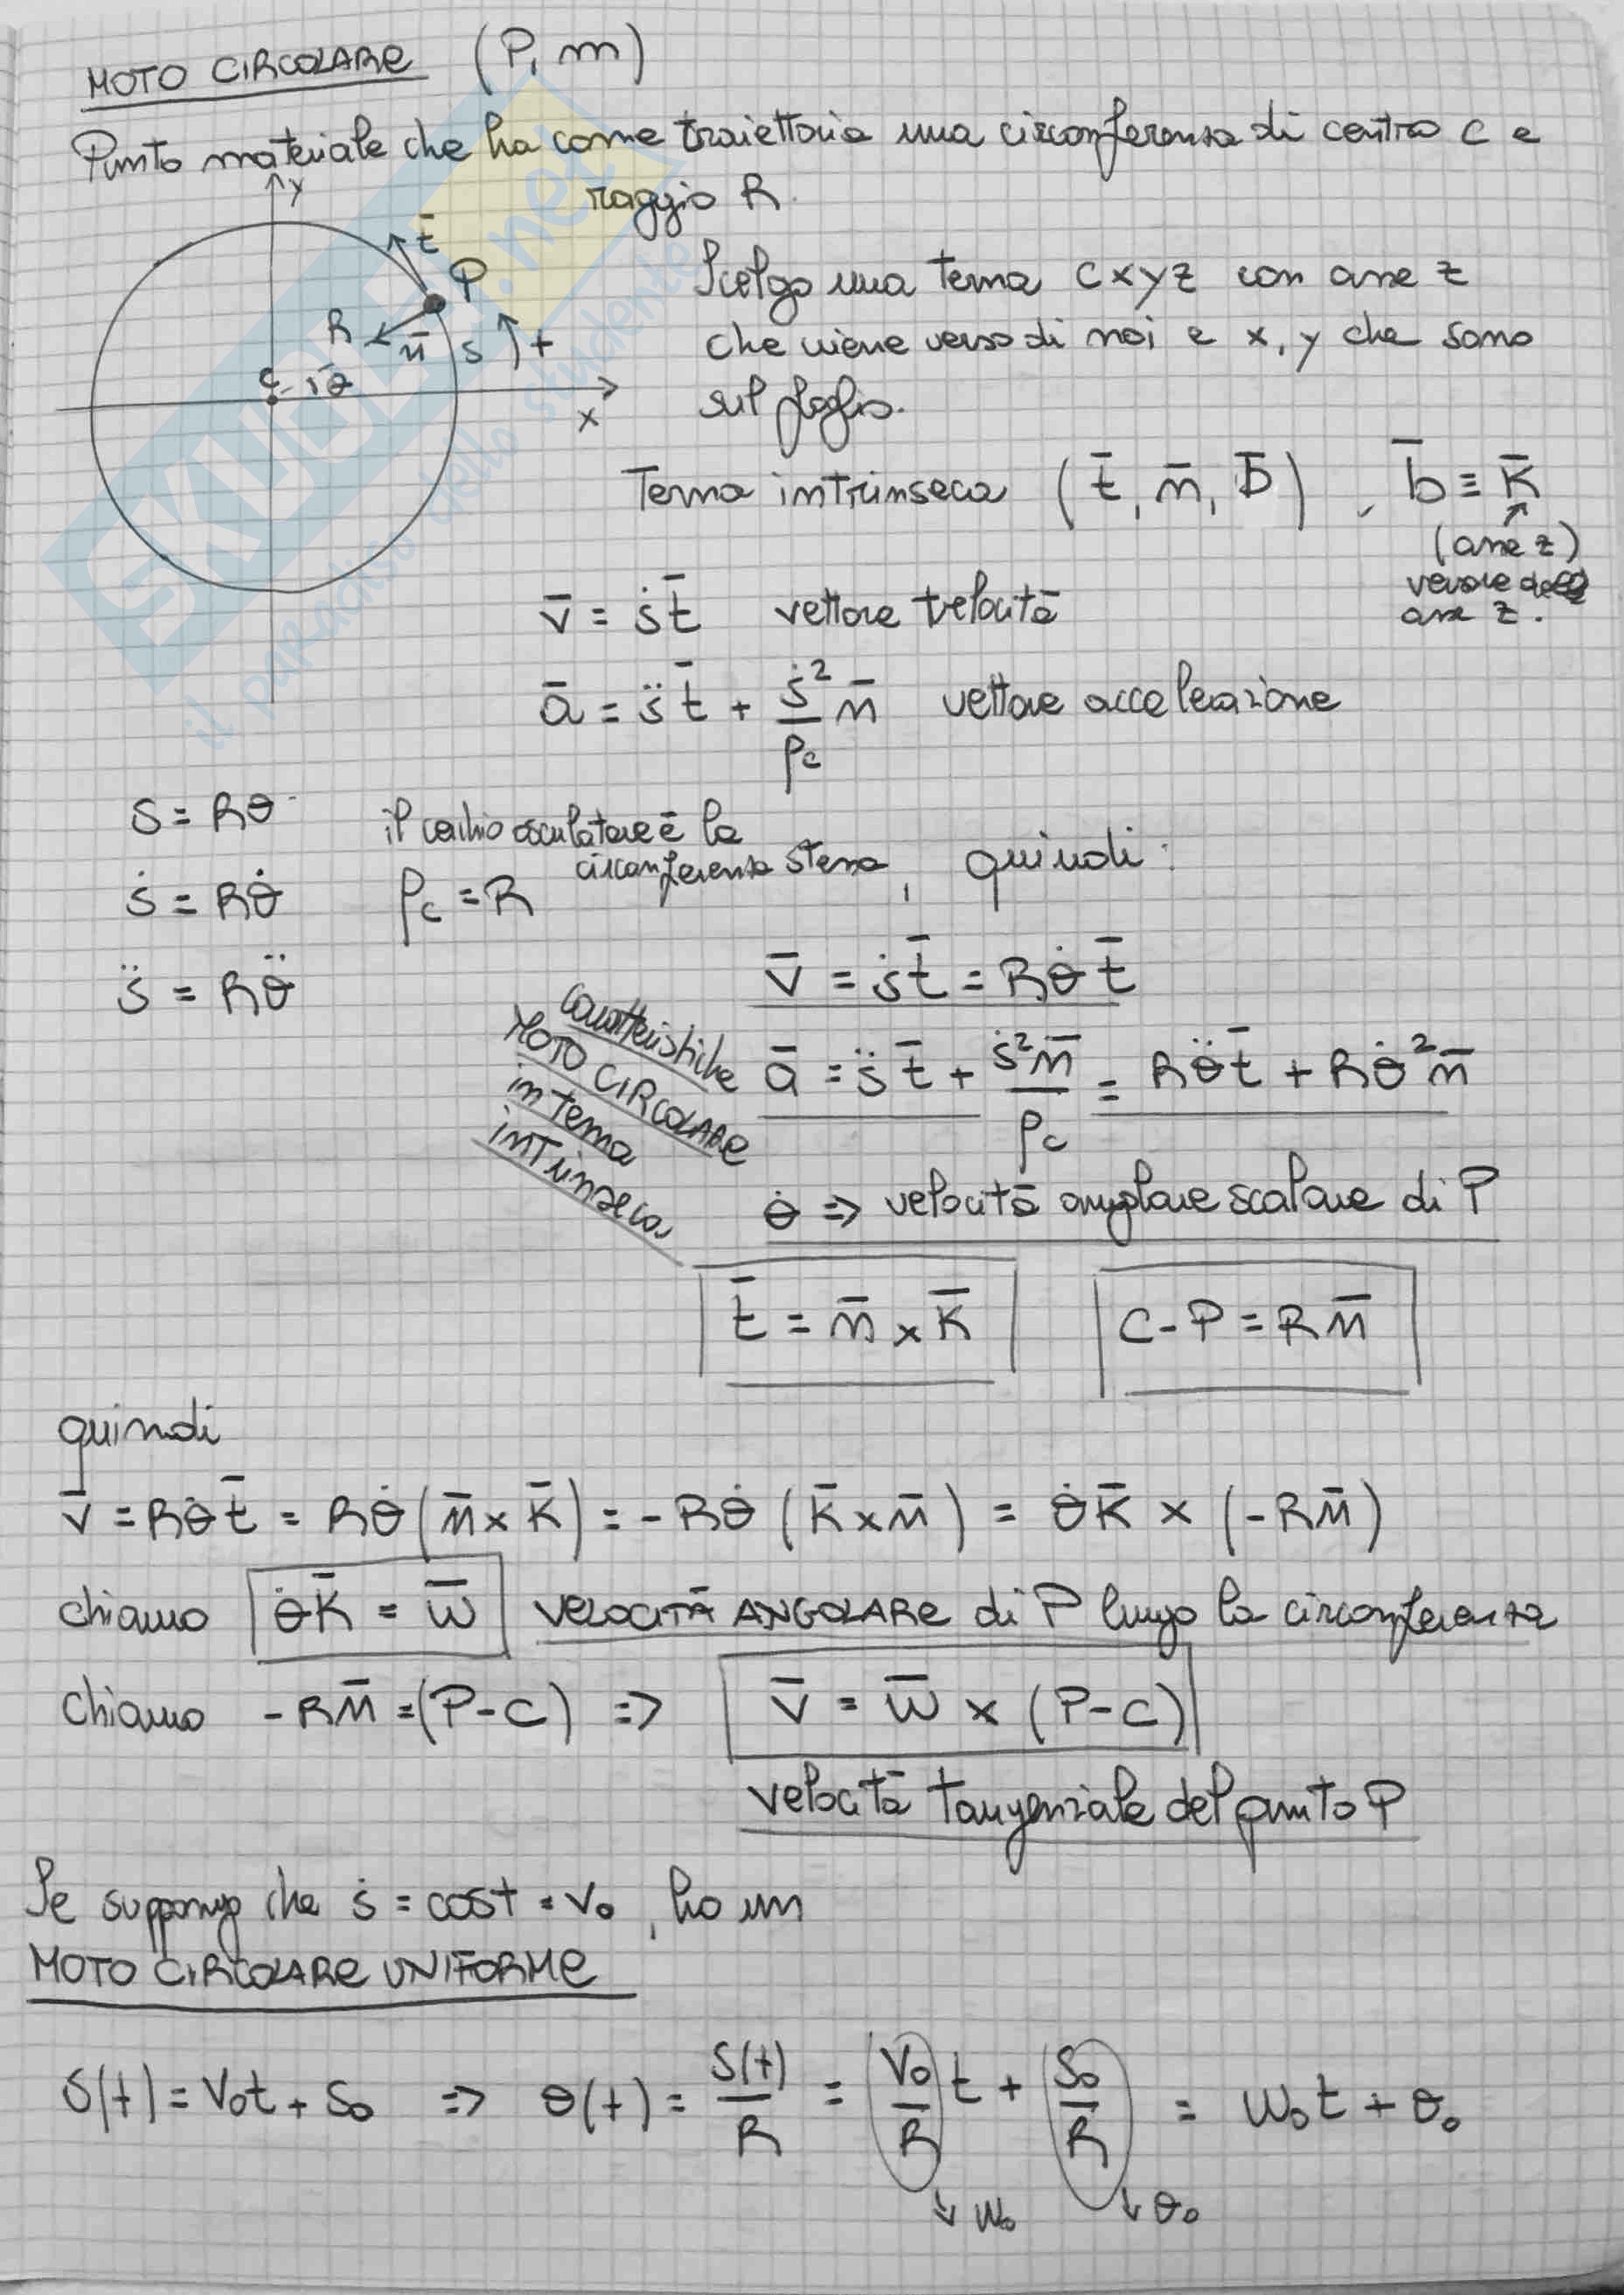 MOTO CIRCOLARE (P, m)
Punto materiale che ha come traiettoria una circonferenza di centro C e
raggio R.
y
t̄
P
R
n̄
s
+
C
θ
x
Scelgo una terna cxyz con asse z
che viene verso di noi e x, y che sono
sul foglio.
Terna intrinseca (t̄, n̄, b̄), b̄ ≡ k̄
(asse z)
versore dell
asse z.
v̄ = ṡt̄ vettore velocità
ā = s̈t̄ + ṡ²/ρc n̄ vettore accelerazione
s = Rθ
ṡ = Rθ̇
s̈ = Rθ̈
il cerchio osculatore è la
circonferenza stessa, quindi:
ρc = R
v̄ = ṡt̄ = Rθ̇t̄
ā = s̈t̄ + ṡ²n̄/ρc = Rθ̈t̄ + Rθ̇²n̄
caratteristiche
MOTO CIRCOLARE
in terna
intrinseca
θ̇ => velocità angolare scalare di P
t̄ = n̄ × k̄
C-P = Rn̄
quindi
v̄ = Rθ̇t̄ = Rθ̇(n̄ × k̄) = -Rθ̇(k̄ × n̄) = θ̇k̄ × (-Rn̄)
chiamo θ̇k̄ = w̄ VELOCITÀ ANGOLARE di P lungo la circonferenza
chiamo -Rn̄ = (P-C) => v̄ = w̄ × (P-C)
velocità tangenziale del punto P
Se suppongo che ṡ = cost = v₀, ho un
MOTO CIRCOLARE UNIFORME
S(t) = V₀t + S₀ => θ(t) = S(t)/R = V₀/R t + S₀/R = w₀t + θ₀
↓ w₀
↓ θ₀
SKUOLA.net
il paradiso dello studente